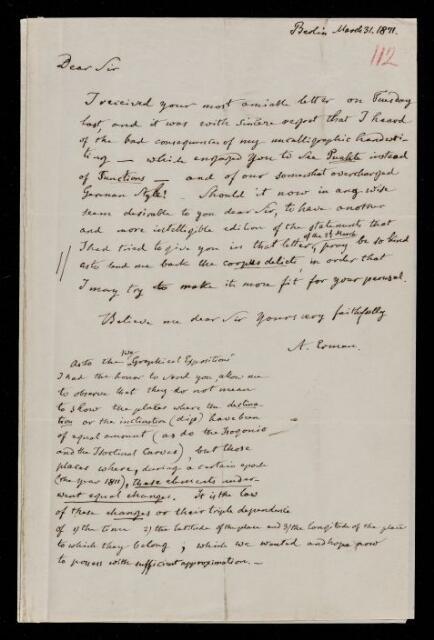 Berlin March 31. 1871.
112
Dear Sir
I received your most amiable letter on Tuesday
last, and it was with sincere regret that I heard
of the bad consequences of my uncalligraphic handwri-
ting — which engaged you to see instead
of Functions — and of our somewhat overcharged
German Style! Should it now in any wise
seem desirable to you dear Sir, to have another
and more intelligible edition of the statements that
I had tried to give you in that letter, of the March pray be so kind
as to lend me back the corpus delicti, in order that
I may try to make it more fit for your perusal.
Believe me dear Sir Yours very faithfully
A. Erman.
As to the "Graphical Exposition"
I had the honor to send you, allow me
to observe that they do not mean
to show the places where the declina-
tion or the inclination (dip) have been
of equal amount (as do the Isogonic —
and the Isoclinal Curves), but those
places where, during a certain epoch
(the year 1811), these elements under-
went equal changes. It is the law
of these changes or their triple dependence
of 1) the time 2) the latitude of the place and 3) the longitude of the place
to which they belong, which we wanted and hope now
to possess with sufficient approximation. —